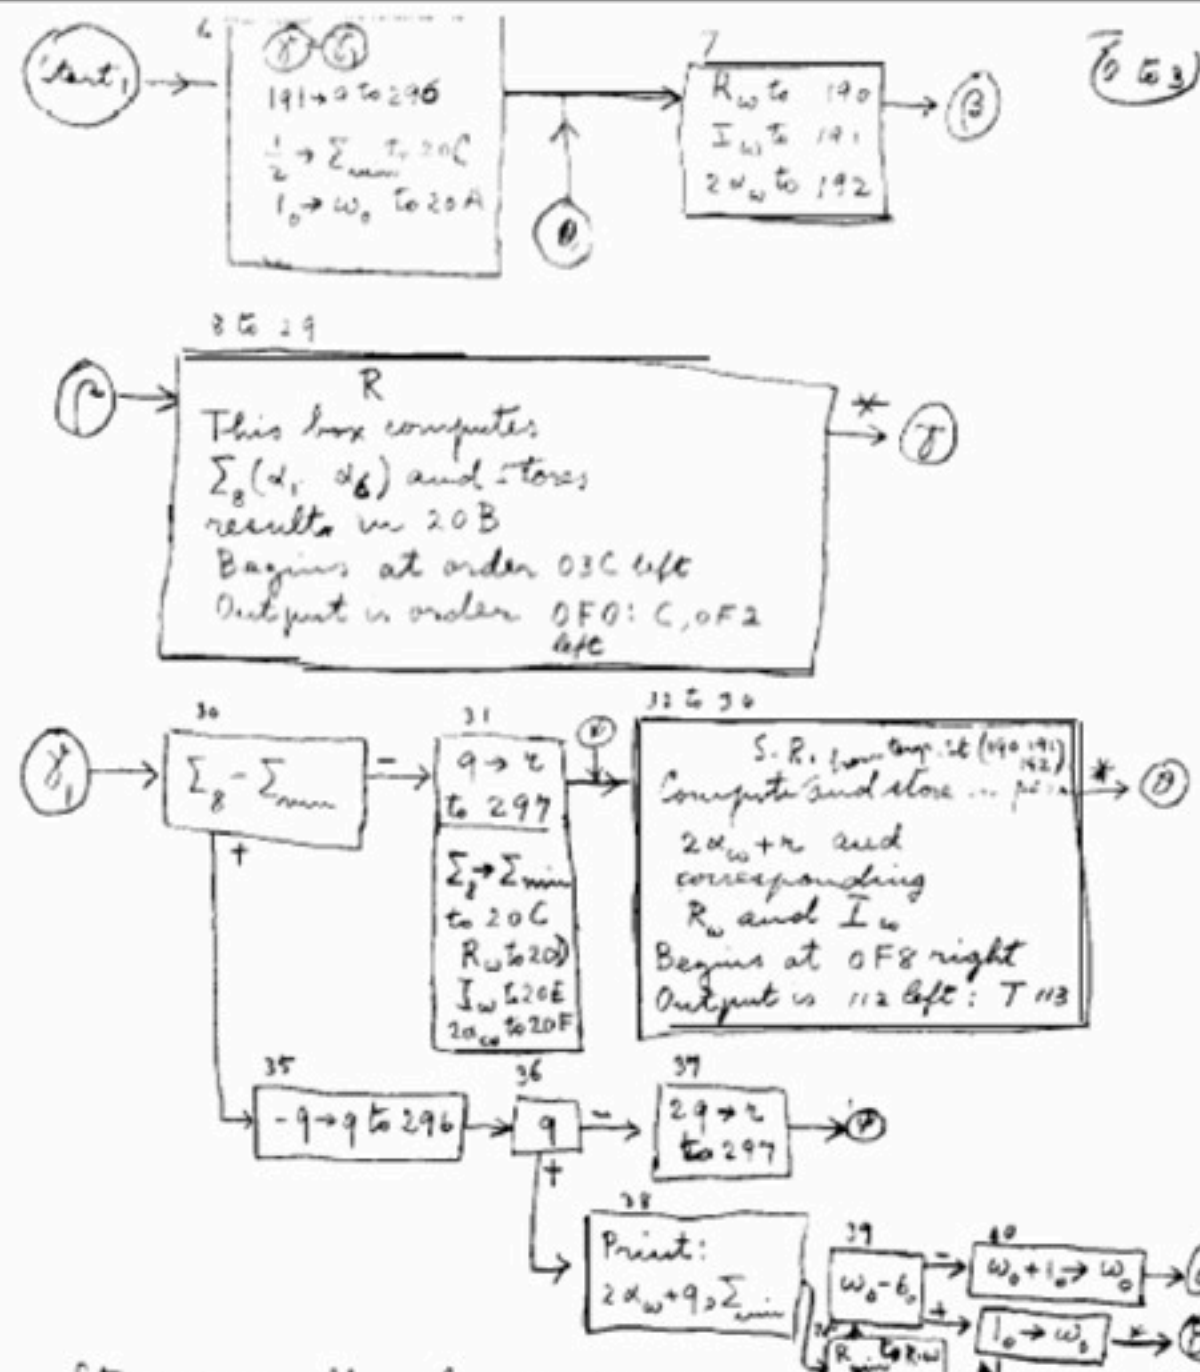 Start₁
6
γ-γ₁
191→q to 296
½→Σmin to 20C
1₀→ω₀ to 20A
θ
7
Rω to 190
Iω to 191
2αω to 192
β
6 to 3
8 to 29
R
This box computes
Σ₈(α₁ α₆) and stores
results in 20B
Begins at order 03C left
Output is order 0F0: C,0F2
left
*
γ
γ₁
30
Σ₈-Σmin
-
+
31
q→r
to 297
Σ₈→Σmin
to 20C
Rω to 20D
Iω to 20E
2αω to 20F
32 to 34
S.R. from temp. st (190 191
192)
Compute and store
2αω+r and
corresponding
Rω and Iω
Begins at 0F8 right
Output is 112 left: T 113
*
θ
35
-q→q to 296
36
q
-
+
37
2q→r
to 297
38
Print:
2αω+q, Σmin
39
ω₀-6₀
-
+
40
ω₀+1₀→ω₀
1₀→ω₀
*
Rmin to Rω